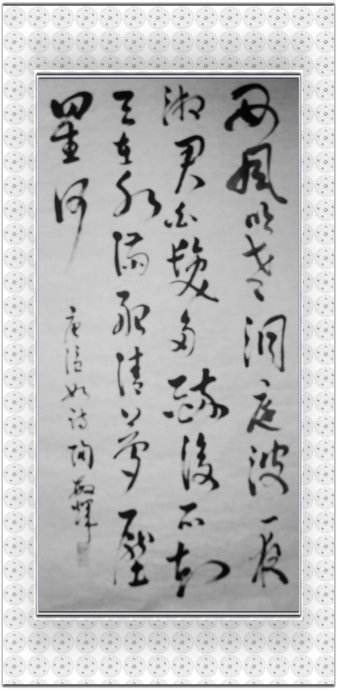 西風吹老洞庭波一夜
湘君白髮多醉後不知
天在水滿船清夢壓
星河
唐温如詩